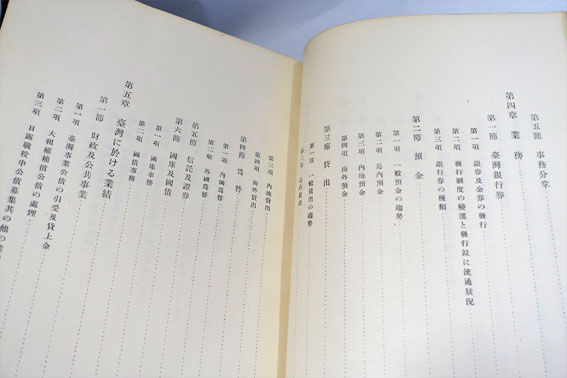 第五節 事務分掌
第四章 業務
第一節 臺灣銀行券
第一項 銀券及金券の發行
第二項 發行制度の變遷と發行竝に流通狀況
第三項 銀行券の種類
第二節 預金
第一項 一般預金の趨勢
第二項 島內預金
第三項 內地預金
第四項 海外預金
第三節 貸出
第一項 一般貸出の趨勢
第二項 島內貸出
第三項 內地貸出
第四項 海外貸出
第四節 爲替
第一項 內國爲替
第二項 外國爲替
第五節 信託及證券
第六節 國庫及國債
第一項 國庫事務
第二項 國債事務
第五章 臺灣に於ける業績
第一節 財政及公共事業
第一項 臺灣事業公債の引受及貸上金
第二項 大租權補償公債の處理
第三項 日露戰役中公債募集其の他の